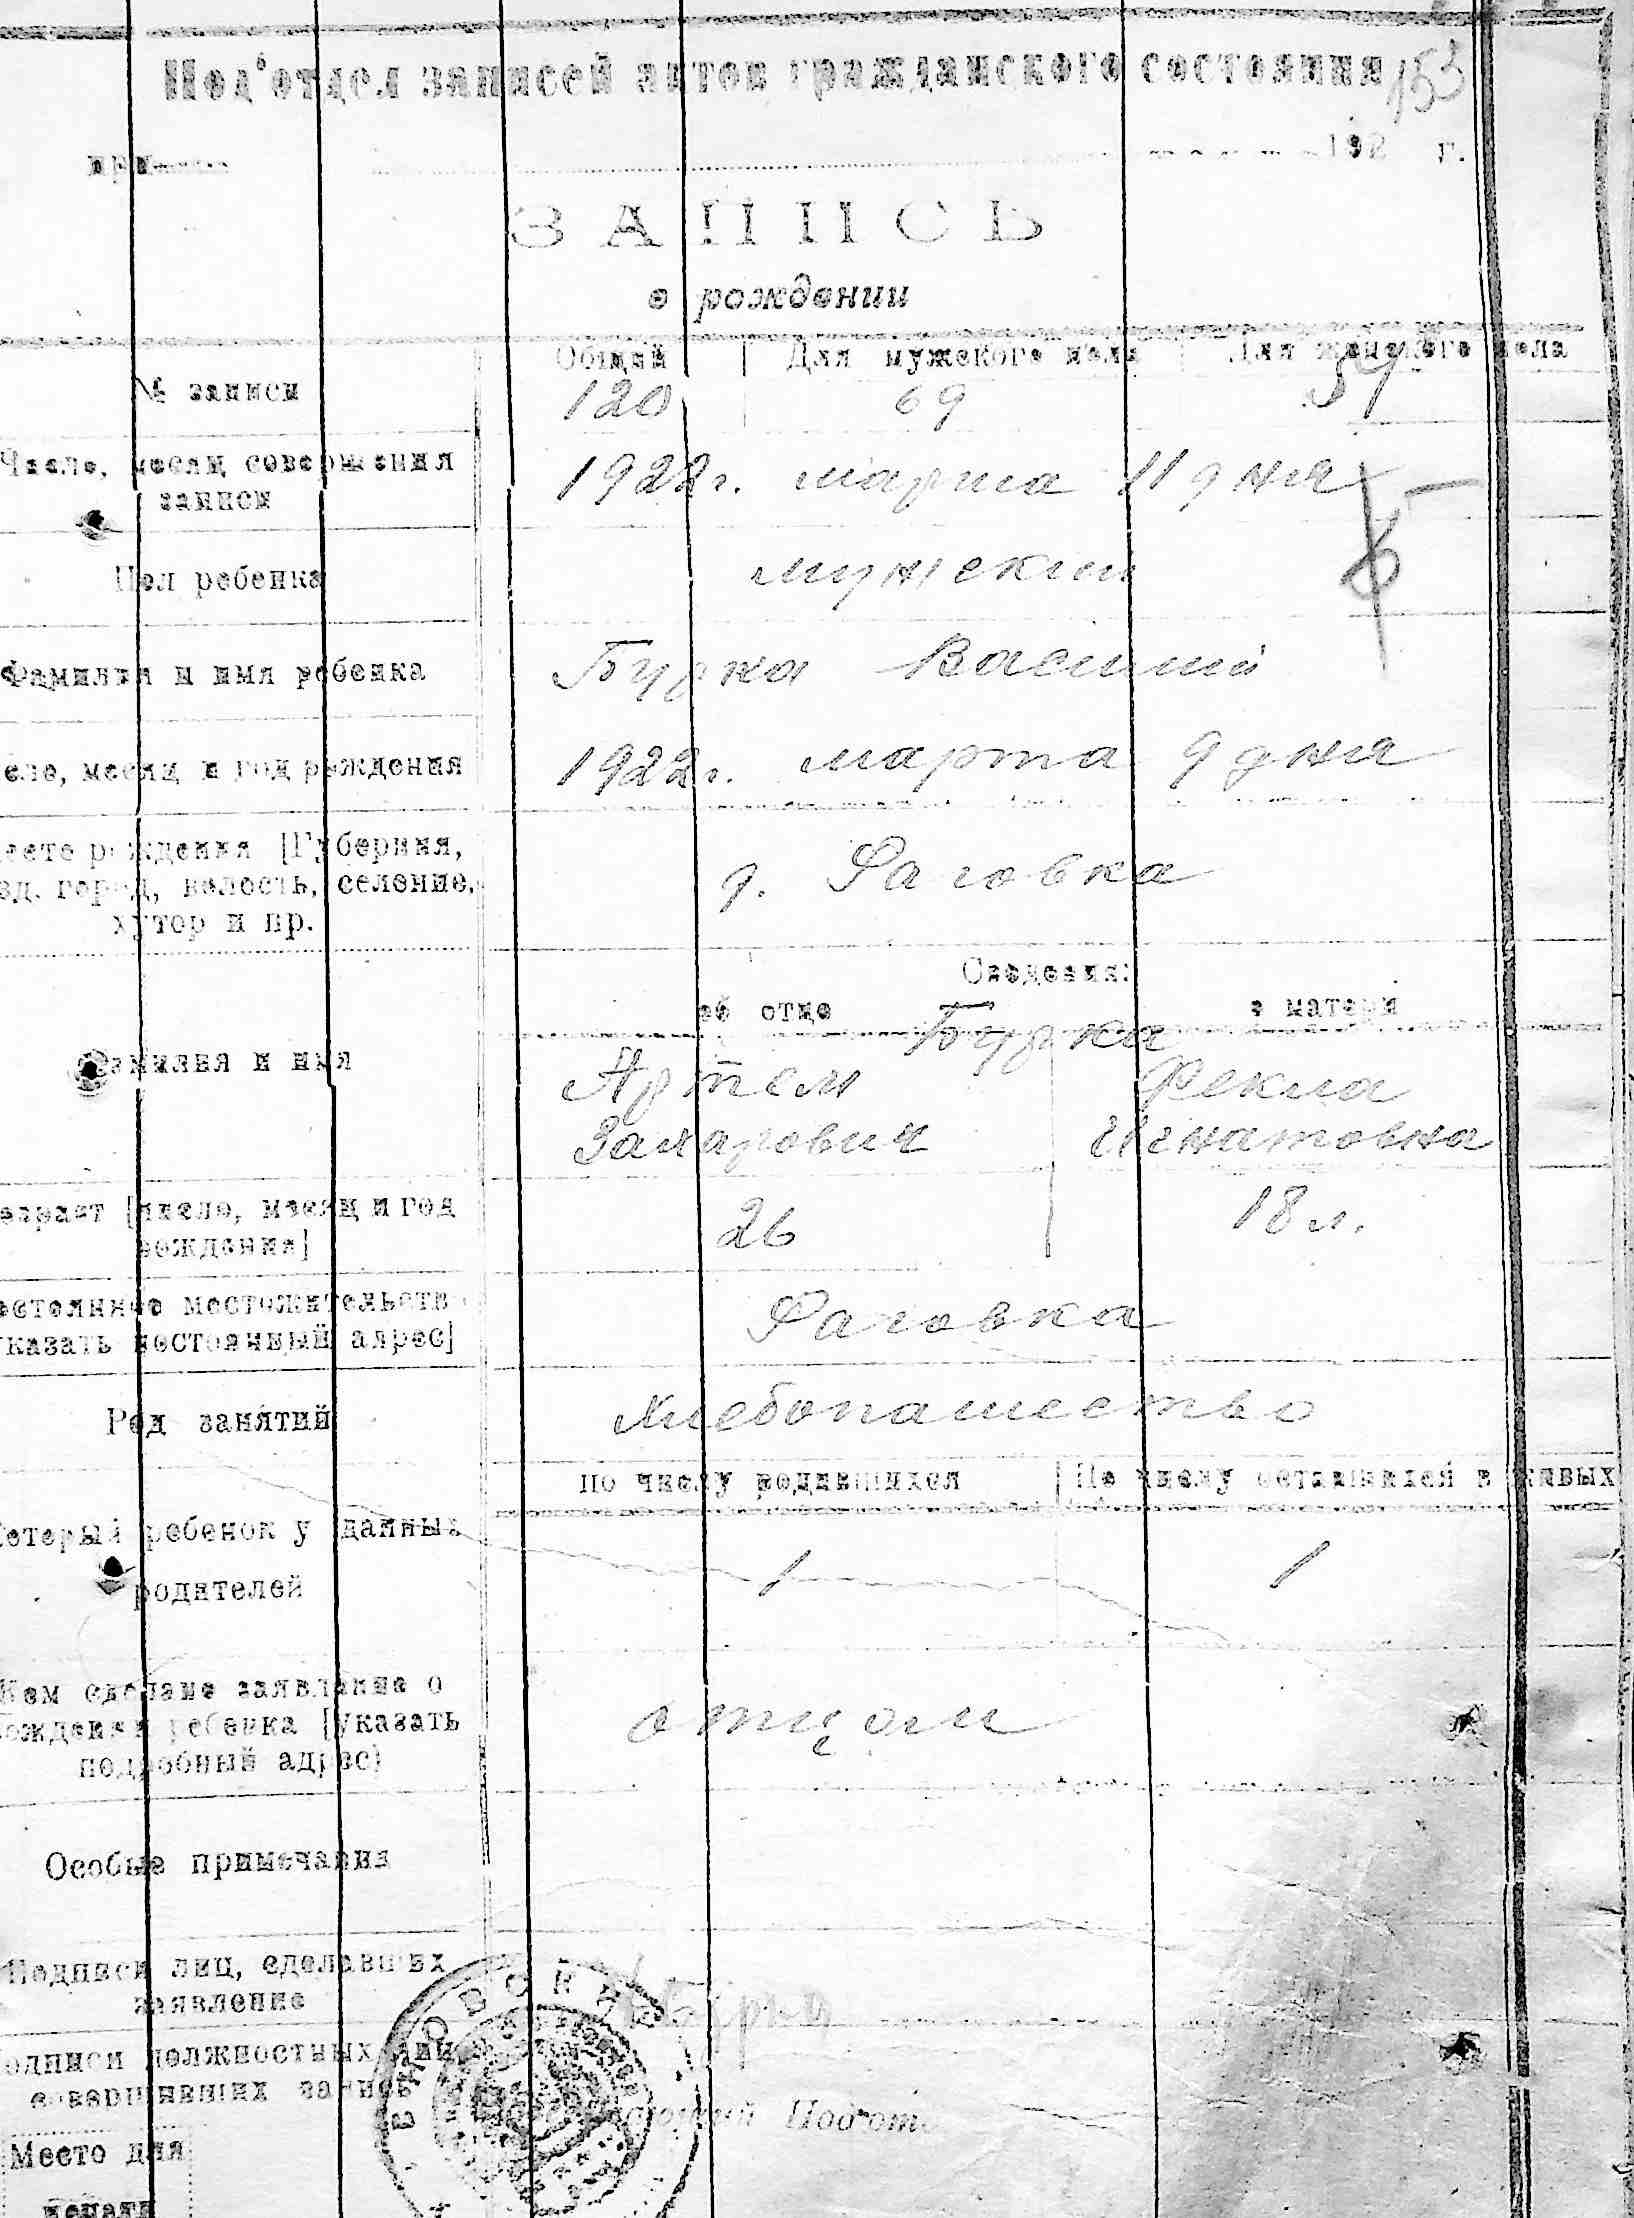 Под'отдел записей актов гражданского состояния 153
при 192 г.
ЗАПИСЬ
о рождении
№ записи
Общий Для мужского пола Для женского пола
120 69 51
Число, месяц совершения
записи
1922г. марта 11 дня
Пол ребенка
мужский
Фамилия и имя ребенка
Бурка Василий
сло, месяц и год рождения
1922г. марта 9 дня
есто рождения [Губерния,
зд. город, волость, селение,
хутор и пр.
д. Фаговка
Сведения:
об отце о матери
Бурка
амилия и имя
Артем Фекла
Захарович Игнатовна
озраст [число, месяц и год
рождения]
26 18 л.
остоянное местожительств
указать постоянный адрес]
Фаговка
Род занятий
Хлебопашество
по числу родившихся По числу оставшихся в живых
Который ребенок у данных
родителей
1 1
Кем сделано заявление о
рождении ребенка [указать
подробный адрес)
отцом
Особые примечания
Подписи лиц, сделавших
заявление
Бурка
одписи должностных лиц
совершивших запись
Под'отд
Место для
печати